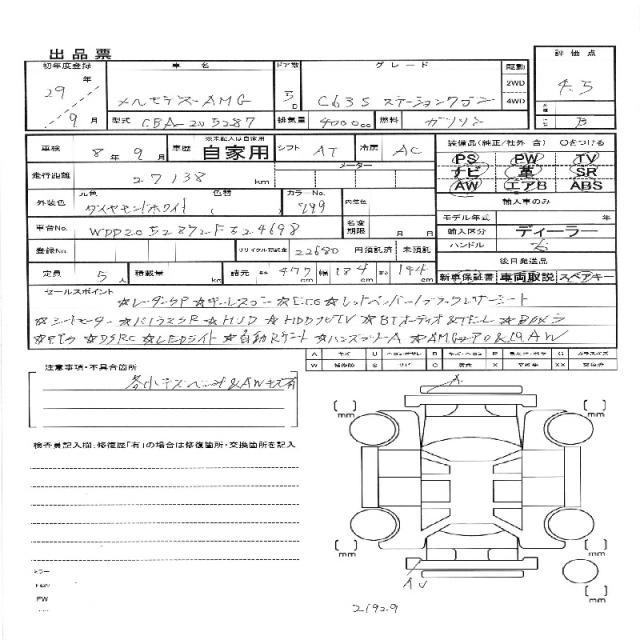 出品票
初年度登録 車名 ドア数 グレード 駆動 評価点
29年 メルセデスAMG 5D C63S ステーションワゴン 2WD 4WD 4.5
9月 型式 CBA-205287 排気量 4000cc 燃料 ガソリン B
車検 8年9月 車歴 ※未記入は自家用 自家用 シフト AT 冷房 AC 装備品(純正/社外 含) ○をつける
走行距離 27138 km メーター PS PW TV
ナビ 革 SR
外装色 元色 ダイヤモンドホワイト 色替 カラーNo. 799 内装色 AW エアB ABS
輸入車のみ
車台No. WDD2052872F524698 名変期限 月 モデル年式 年
輸入区分 ディーラー
登録No. リサイクル預託金 22680 円 預託済 未預託 ハンドル 右
定員 5人 積載量 kg 諸元 長さ 477 cm 幅 184 cm 高さ 144 cm 後日発送品
新車保証書 車両取説 スペアキー
セールスポイント
☆レーダーSP ☆キーレスゴー ☆ETC ☆レッドペッパー/ブラックレザーシート
☆シートヒーター ☆パノラマSR ☆HUD ☆HDDナビTV ☆BTオーディオ&TEL ☆Bカメラ
☆DSRC ☆LEDライト ☆自動Rゲート ☆ハンズフリーA ☆AMGエアロ&19AW
注意事項・不具合箇所
各小キズヘコミ&AWキズ有
検査員記入欄:修復歴「有」の場合は修復箇所・交換箇所を記入
A
mm mm
mm mm
AU
mm
PW
21929